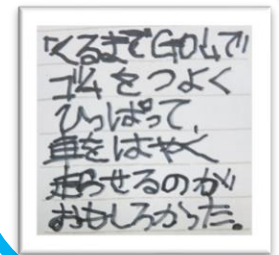 「くるまでGOムで」
ゴムをつよく
ひっぱって、
車をはやく
走らせるのが
おもしろかった。